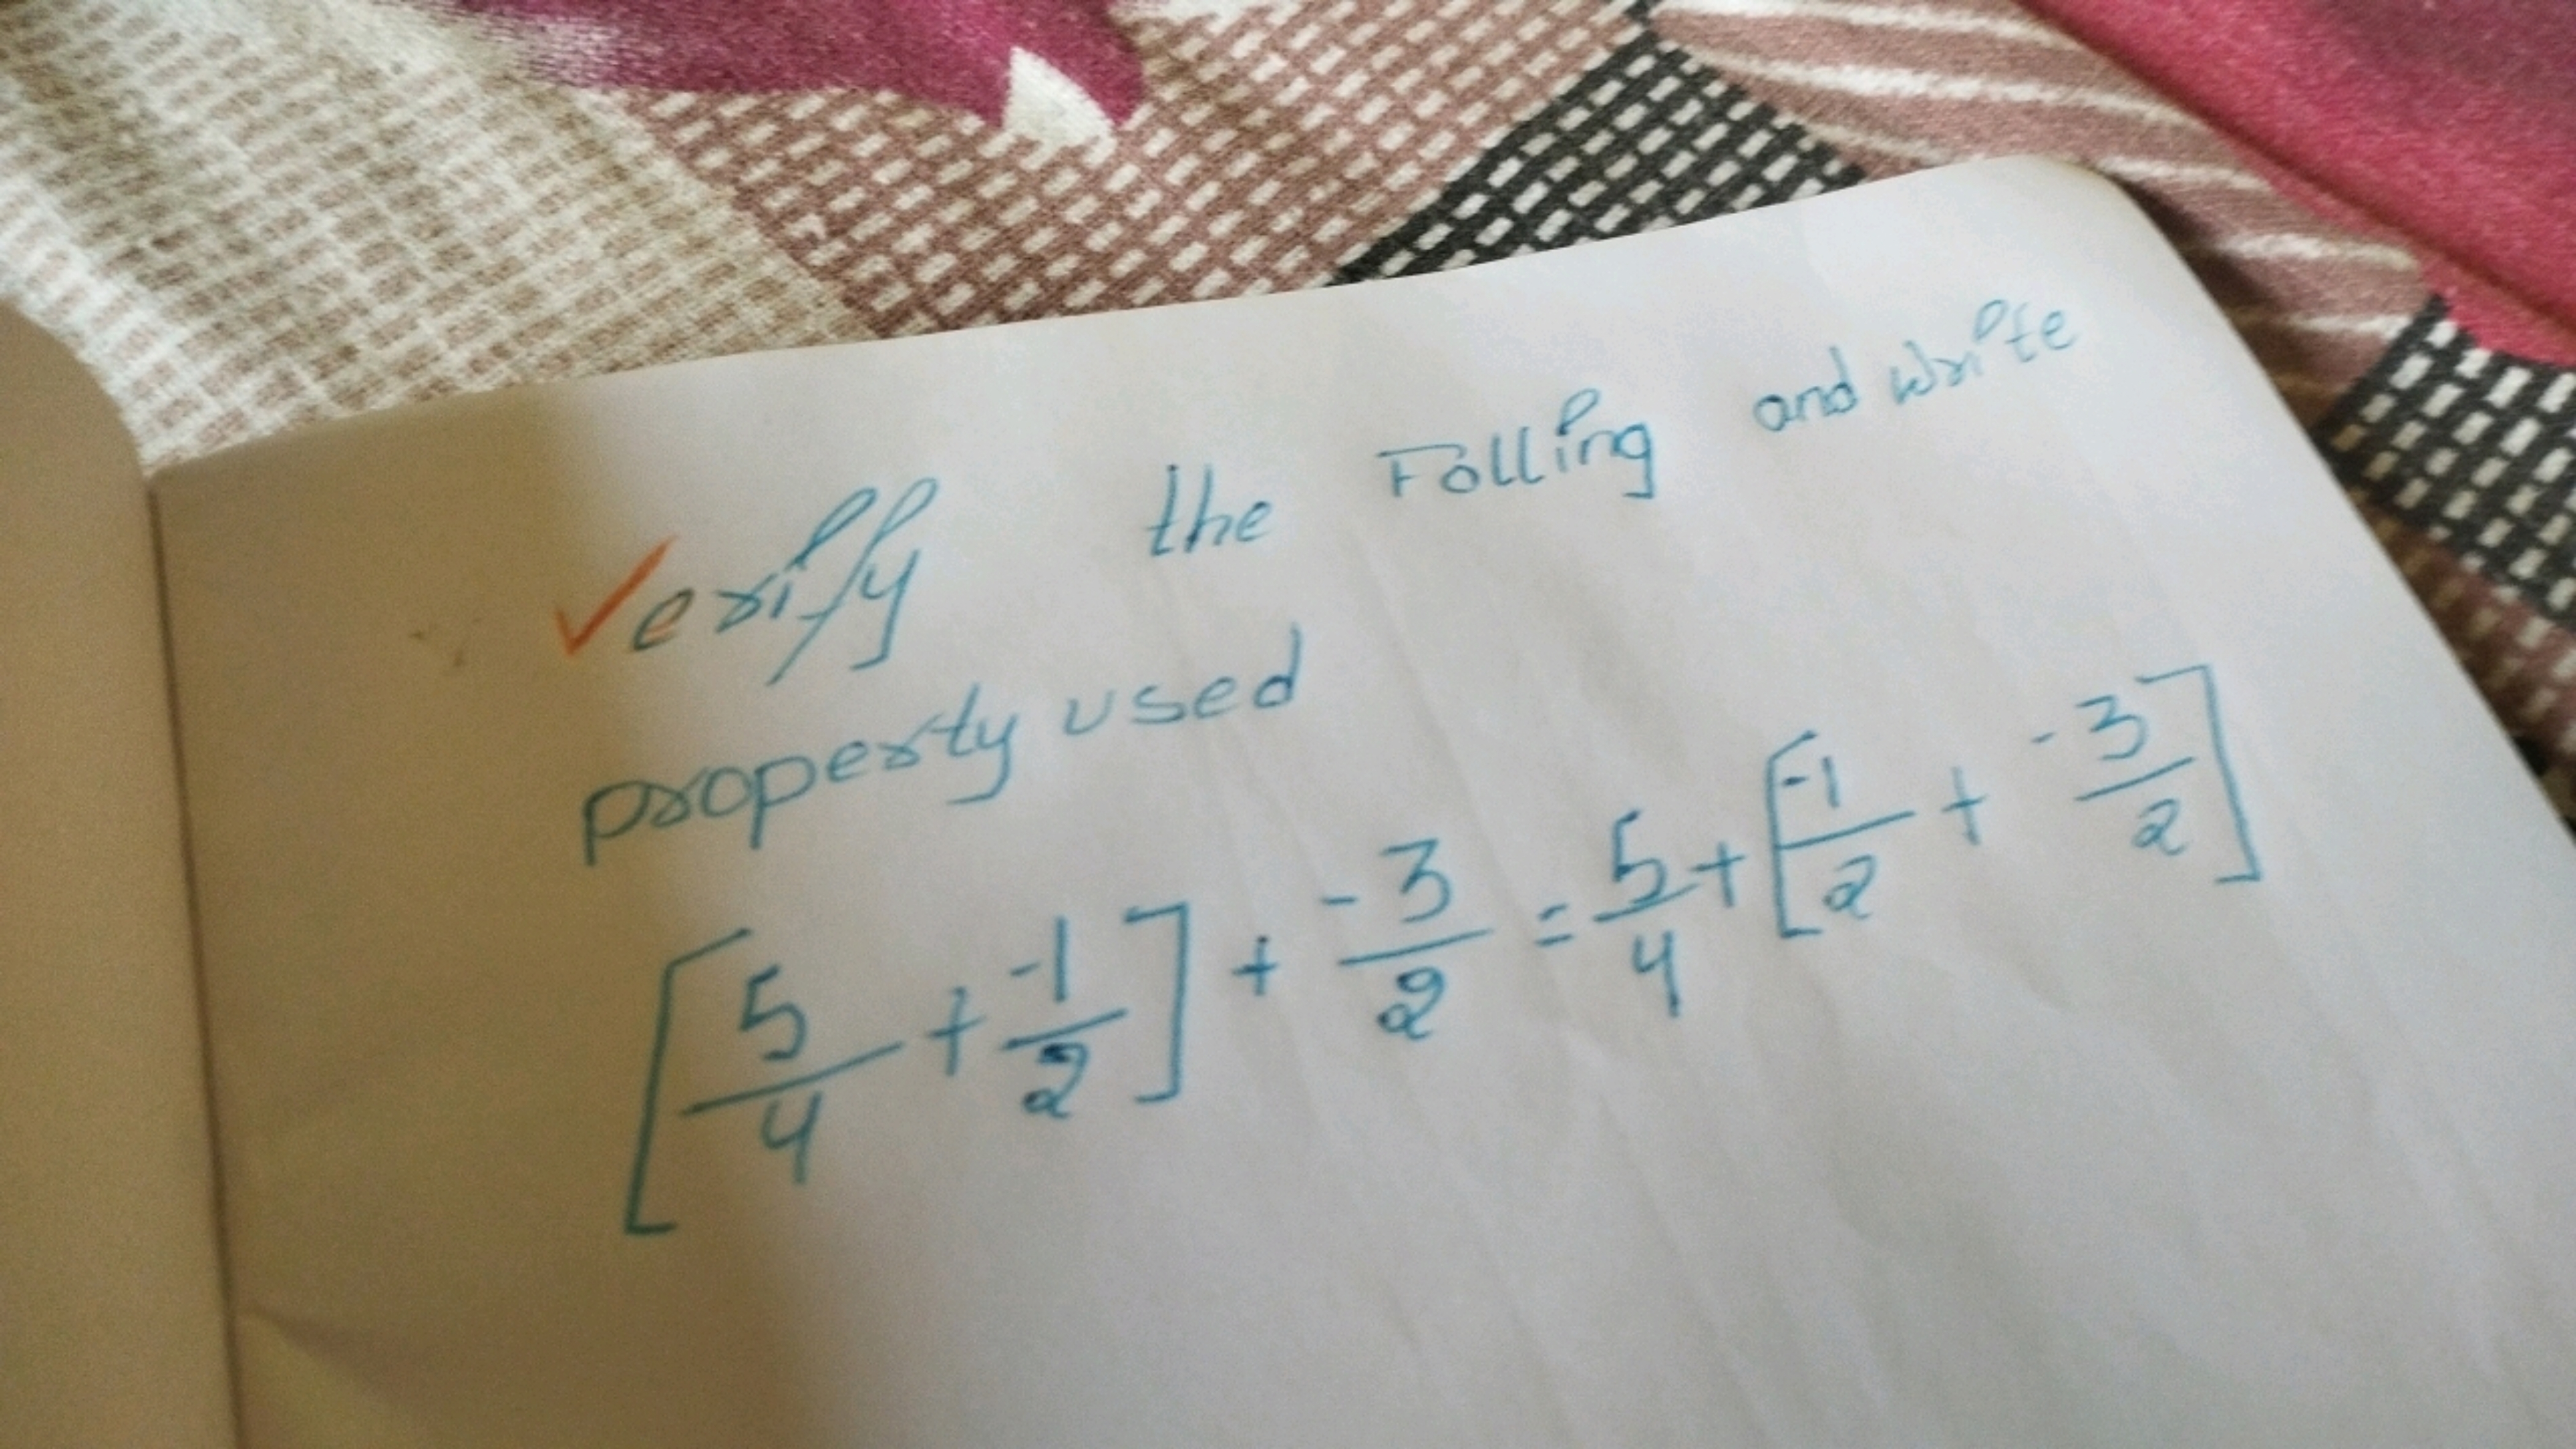 Verify the Folling and write
property used
[5/4 + -1/2] + -3/2 = 5/4 + [-1/2 + -3/2]